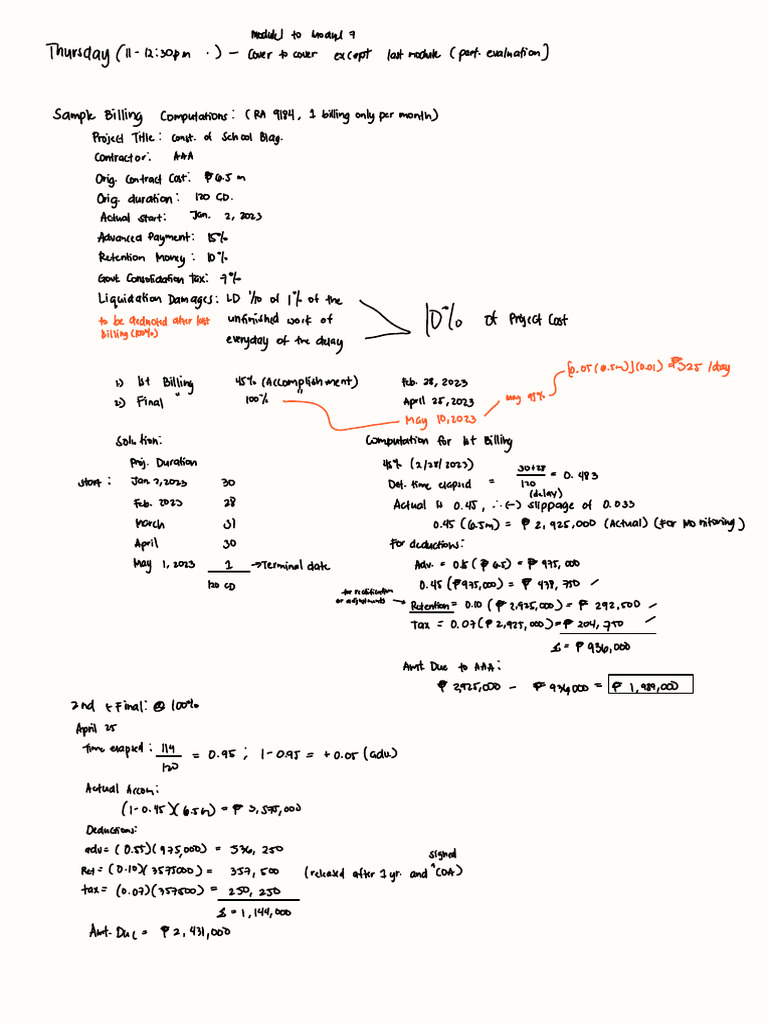 Module 1 to Modul 7
Thursday (11-12:30pm .) - Cover to cover except last module (perf. evaluation)
Sample Billing Computations: (RA 9184, 1 billing only per month)
Project Title: Const. of School Bldg.
Contractor: AAA
Orig. Contract Cost: ₱6.5 m
Orig. duration: 120 CD.
Actual start: Jan. 2, 2023
Advanced Payment: 15%
Retention Money: 10%
Govt Consolidation Tax: 7%
Liquidation Damages: LD 1/10 of 1% of the
unfinished work of
everyday of the delay
to be deducted after last
billing (100%)
10% of Project Cost
1) 1st Billing 45% (Accomplishment) Feb. 28, 2023
2) Final " 100% " April 25, 2023
May 10, 2023
may 95%
[0.05(6.5m)](0.01) = ₱325 /day
Solution:
Proj. Duration
Start: Jan 2, 2023 30
Feb. 2023 28
March 31
April 30
May 1, 2023 1 → Terminal date
120 CD
Computation for 1st Billing
45% (2/28/2023)
Det. time elapsed = 30+28 / 120 = 0.483
(delay)
Actual is 0.45, ∴ (-) slippage of 0.033
0.45 (6.5m) = ₱ 2,925,000 (Actual) (For Monitoring)
For deductions:
Adv. = 0.15 (₱ 6.5) = ₱ 975,000
0.45 (₱975,000) = ₱ 438,750
for rectification
or adjustments
Retention = 0.10 (₱ 2,925,000) = ₱ 292,500
Tax = 0.07 (₱ 2,925,000) = ₱ 204,750
Σ = ₱ 936,000
Amt Due to AAA:
₱ 2,925,000 - ₱ 936000 = ₱ 1,989,000
2nd & Final: @ 100%
April 25
Time elapsed: 114 / 120 = 0.95 ; 1-0.95 = +0.05 (adv.)
Actual Accom:
(1-0.45)(6.5m) = ₱ 3,575,000
Deductions:
adv = (0.55)(975,000) = 536,250
Ret = (0.10)(3575000) = 357,500 (released after 1 yr. and ^signed COA)
tax = (0.07)(357500) = 250,250
Σ = 1,144,000
Amt. Due = ₱ 2,431,000